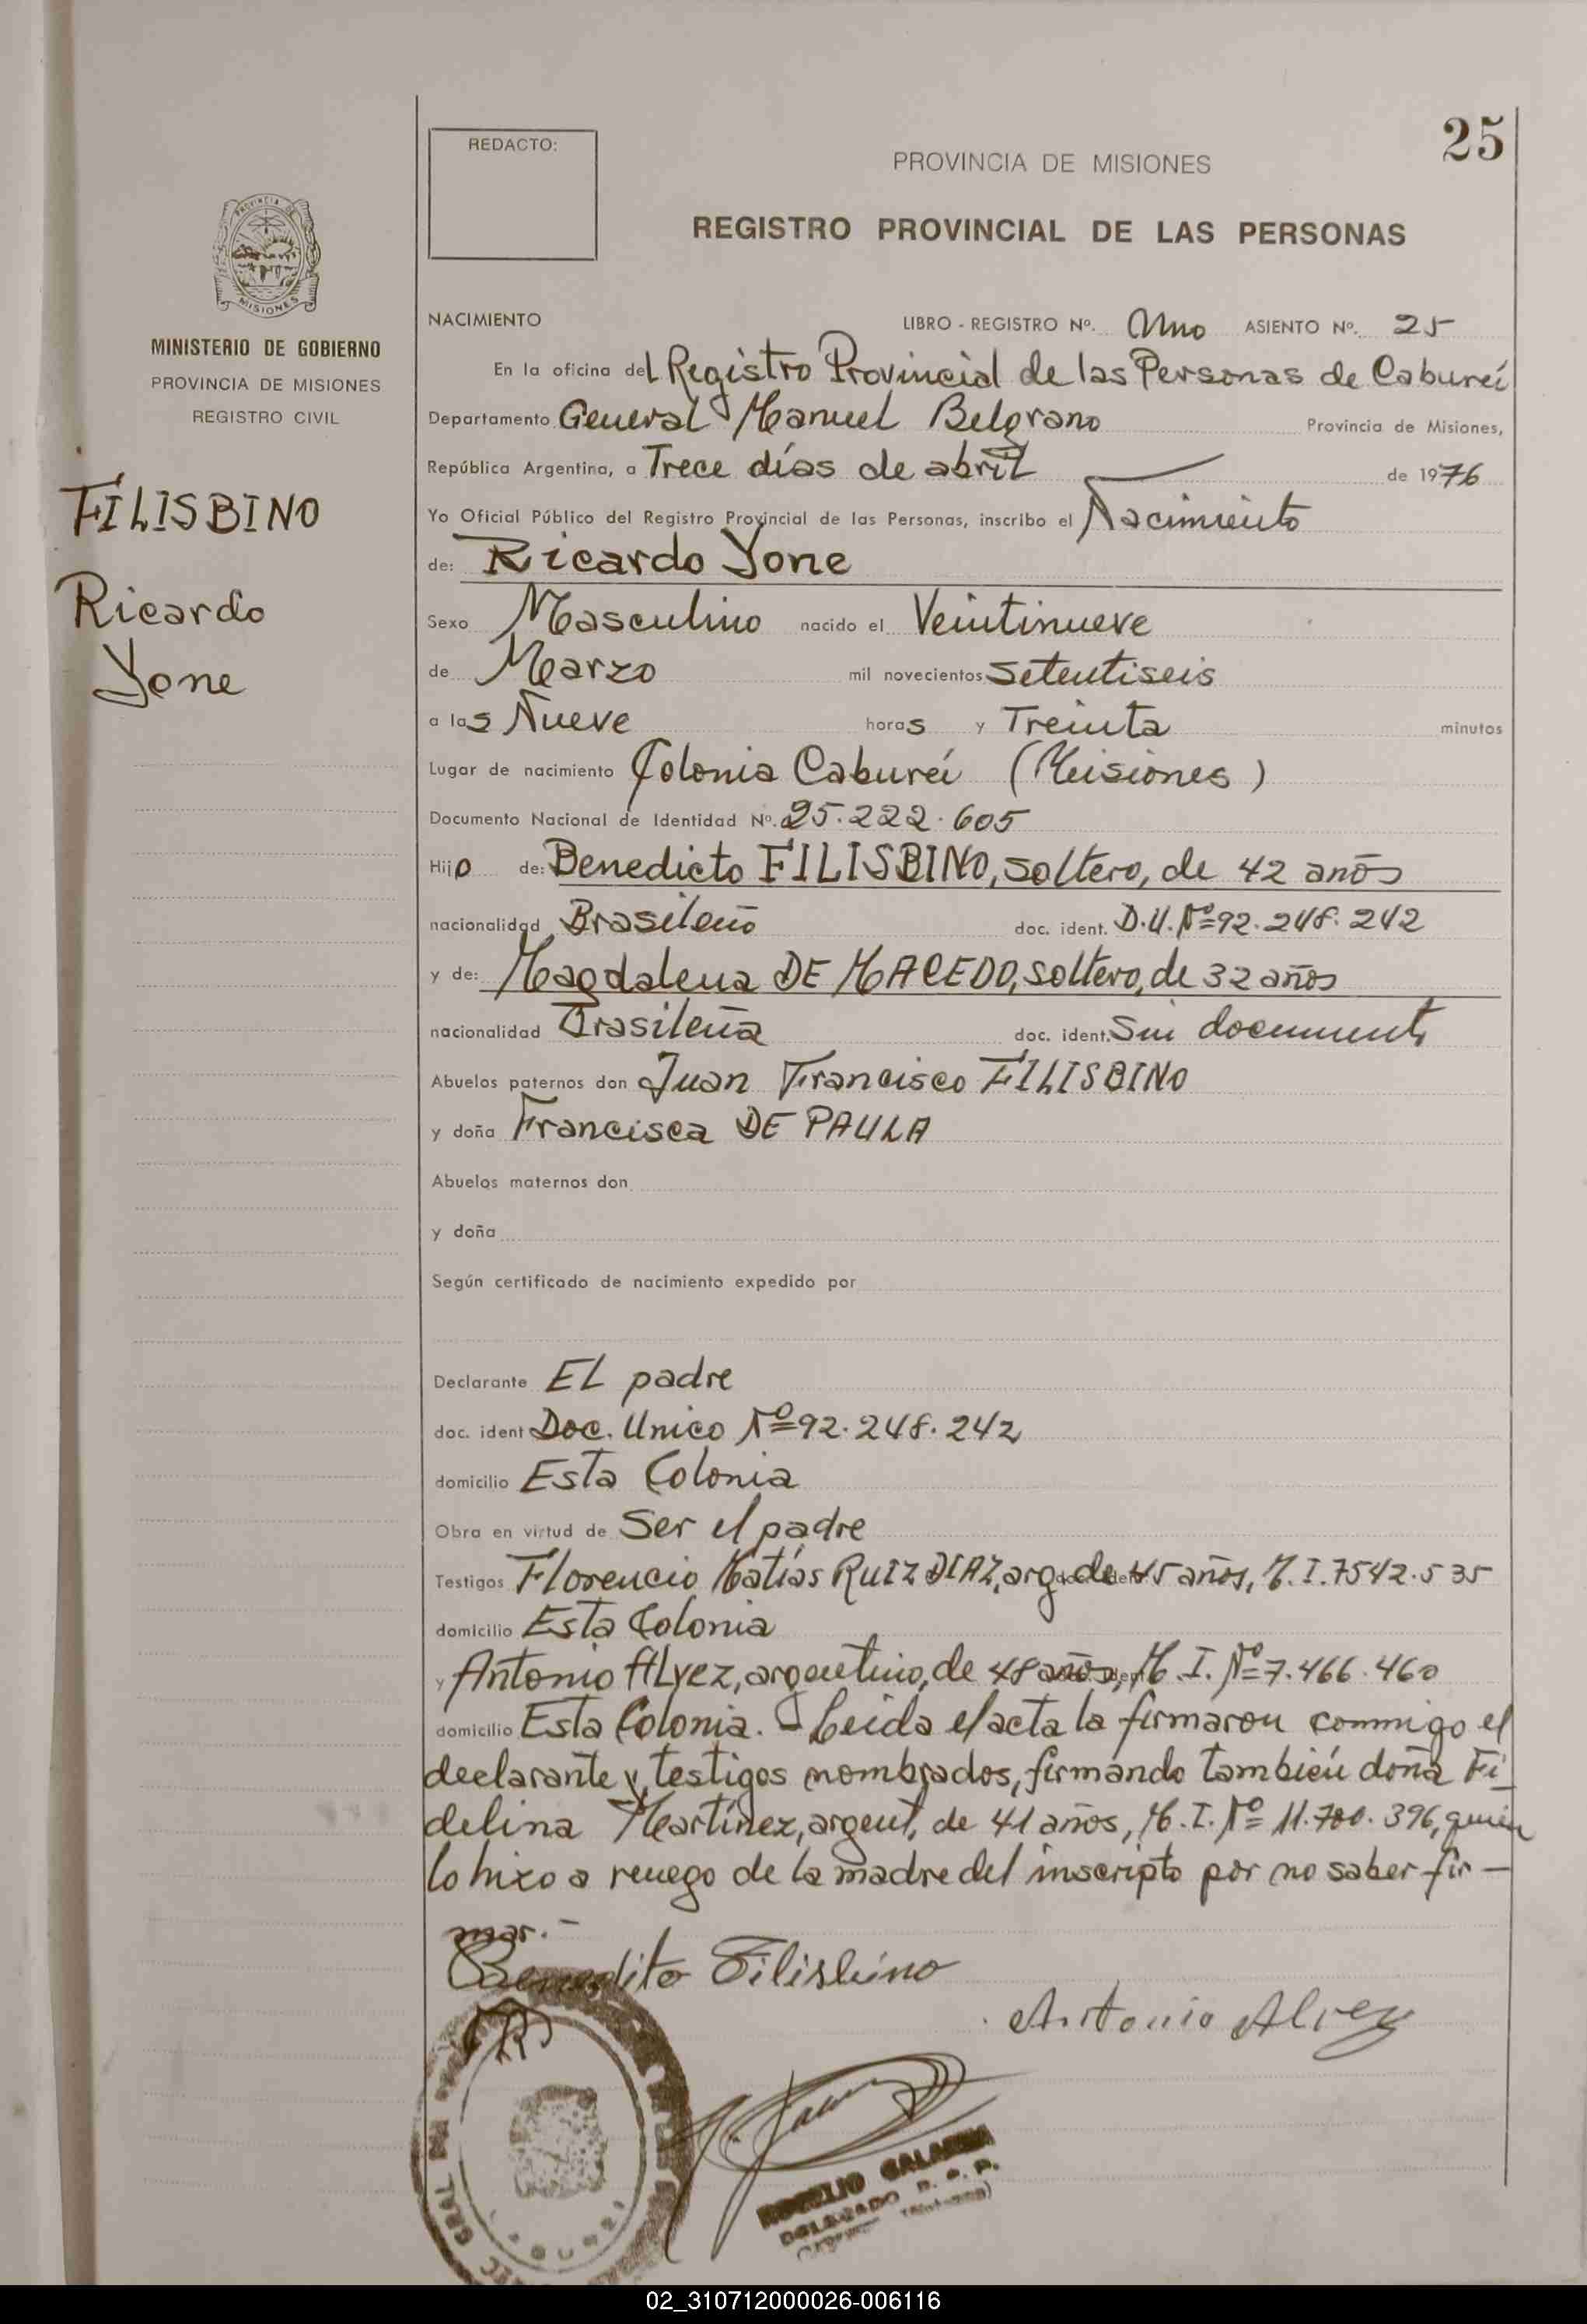 25
REDACTO:
PROVINCIA DE MISIONES
REGISTRO PROVINCIAL DE LAS PERSONAS
PROVINCIA DE
MISIONES
MINISTERIO DE GOBIERNO
PROVINCIA DE MISIONES
REGISTRO CIVIL
FILISBINO
Ricardo
Yone
NACIMIENTO LIBRO - REGISTRO Nº. Uno ASIENTO Nº. 25
En la oficina del Registro Provincial de las Personas deĀbureí
Departamento General Manuel Belgrano Provincia de Misiones,
República Argentina, a Trece días de abril de 1976
Yo Oficial Público del Registro Provincial de las Personas, inscribo el Nacimiento
de: Ricardo Yone
Sexo Masculino nacido el Veintinueve
de Marzo mil novecientos Setentiseis
a las Nueve horas y Treinta minutos
Lugar de nacimiento Colonia Cabureí (Misiones)
Documento Nacional de Identidad Nº. 25.222.605
Hijo de: Benedicto FILISBINO, soltero, de 42 años
nacionalidad Brasileño doc. ident. D.U. Nº 92.248.242
y de: Magdalena DE MACEDO, soltero, de 32 años
nacionalidad Brasileña doc. ident. Sin documento
Abuelos paternos don Juan Francisco FILISBINO
y doña Francisca DE PAULA
Abuelos maternos don
y doña
Según certificado de nacimiento expedido por
Declarante EL padre
doc. ident Doc. Unico Nº 92.248.242
domicilio Esta Colonia
Obra en virtud de Ser el padre
Testigos Florencio Matías RUIZ DIAZ, arg. de 45 años, M.I. 7542.535
domicilio Esta Colonia
y Antonio ALvez, argentino, de 48 años, M.I. Nº 7.466.460
domicilio Esta Colonia. - Leida el acta la firmaron conmigo el
declarante y testigos nombrados, firmando también doña Fi
delina Martínez, argent, de 41 años, M.I. Nº 11.700.396, quien
lo hizo a ruego de la madre del inscripto por no saber fir -
mar. -
Benedito Filisbino
Antonio Alvez
ROGELIO
DELEGADO R. P. P.
02_310712000026-006116